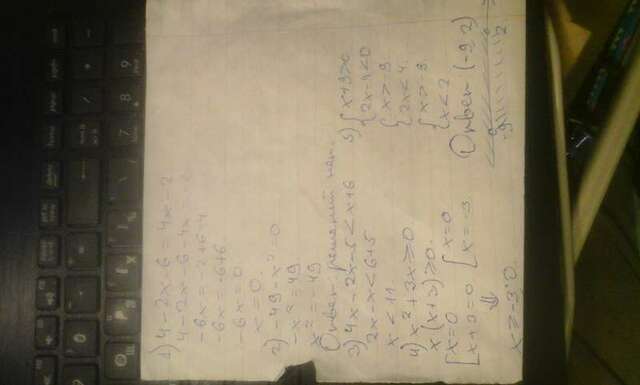 1) 4-2x-6=4x-2
4-2x-6-4x=-2
-6x=-2+6-4
-6x=-6+6
-6x=0
x=0.
2) -49-x²=0
-x²=49
x²=-49
Ответ: решений нет.
3) 4x-2x-5<x+6
2x-x<6+5
x<11
4) x²+3x≥0
x(x+3)≥0.
[x=0 [x=0
[x+3=0 [x=-3
⇓
x≥-3;0.
5) {x+9>0
{2x-4<0
{x>-9
{2x<4.
{x>-9.
{x<2
Ответ (-9 2)
-9 2